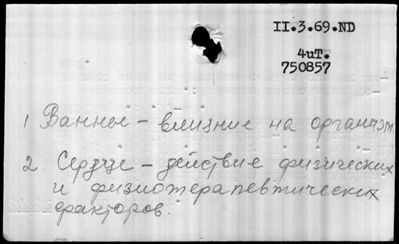 II.3.69.ND
4uT.
750857
1 Ванны - влияние на организм
2. Сердце - действие физических
и физиотерапевтических
факторов.